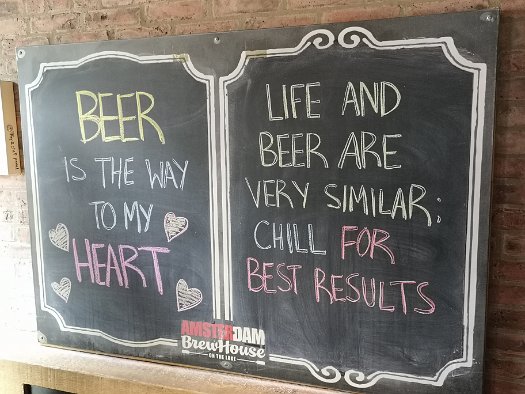 BEER
IS THE WAY
TO MY
HEART
LIFE AND
BEER ARE
VERY SIMILAR;
CHILL FOR
BEST RESULTS
AMSTERDAM
BREWHOUSE
ON THE LAKE